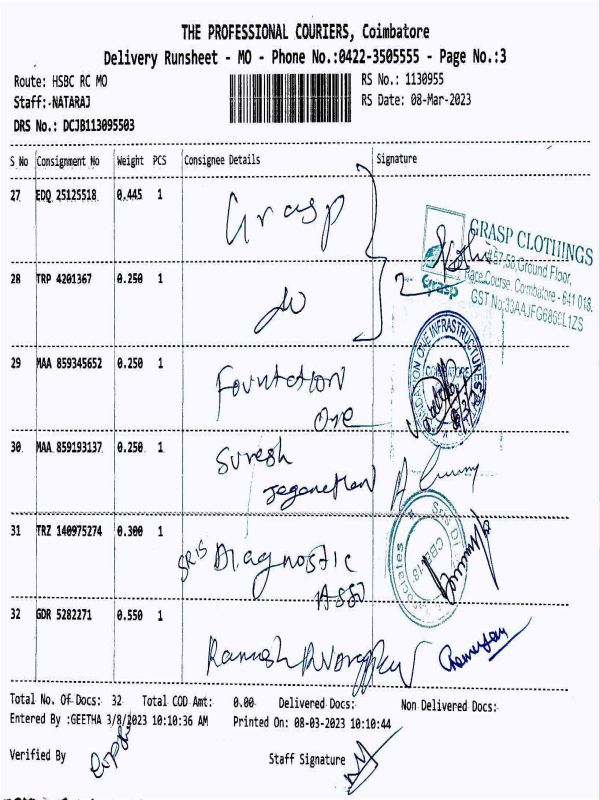 THE PROFESSIONAL COURIERS, Coimbatore
Delivery Runsheet - MO - Phone No.:0422-3505555 - Page No.:3
Route: HSBC RC MO
RS No.: 1130955
Staff:-NATARAJ
RS Date: 08-Mar-2023
DRS No.: DCJB113095503
S No Consignment No Weight PCS Consignee Details Signature
27 EDQ 25125518 0.445 1 Grasp
GRASP CLOTHINGS
#57,58,Ground Floor,
Race Course, Coimbatore - 641 018.
Grasp
28 TRP 4201367 0.250 1 do
29 MAA 859345652 0.250 1 Foundation
One
30 MAA 859193137 0.250 1 Suresh
Jeganethan
31 TRZ 140975274 0.300 1 SRIS Diagnostic
ASSO
32 GDR 5282271 0.550 1 Ramesh
Total No. Of Docs: 32 Total COD Amt: 0.00 Delivered Docs: Non Delivered Docs:
Entered By :GEETHA 3/8/2023 10:10:36 AM Printed On: 08-03-2023 10:10:44
Verified By
Staff Signature